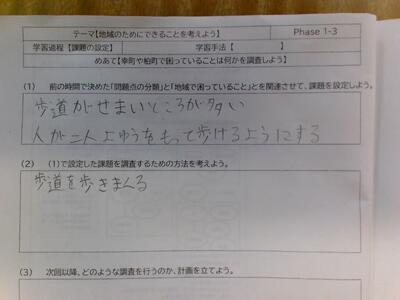 テーマ【地域のためにできることを考えよう】 Phase 1-3
学習過程【課題の設定】 学習手法【 】
めあて【幸町や柏町で困っていることは何かを調査しよう】
(1) 前の時間で決めた「問題点の分類」と「地域で困っていること」とを関連させて、課題を設定しよう。
歩道がせまいところが多い
人が二人よゆうをもって歩けるようにする
(2) (1)で設定した課題を調査するための方法を考えよう。
歩道を歩きまくる
(3) 次回以降、どのような調査を行うのか、計画を立てよう。